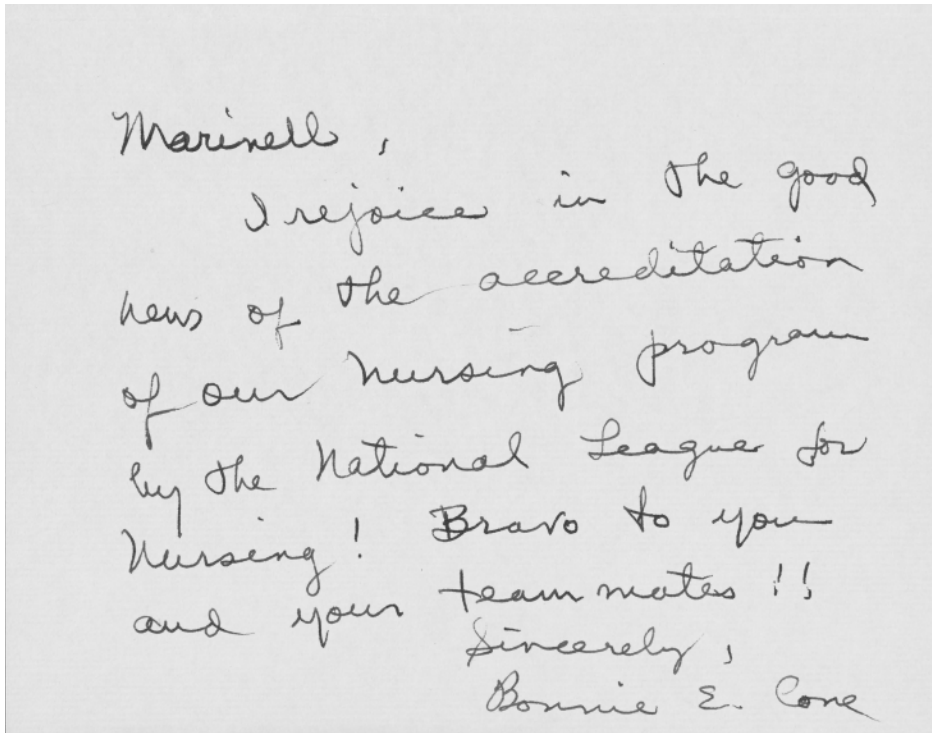 Marinell,
I rejoice in the good
news of the accreditation
of our nursing program
by the National League for
Nursing! Bravo to you
and your teammates!!
Sincerely,
Bonnie E. Cone